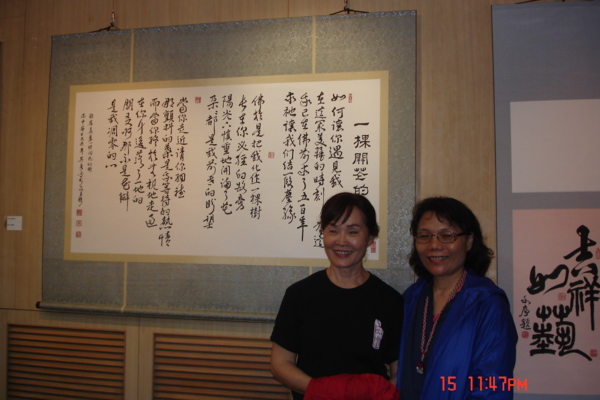 一棵開花的
如何讓你遇見我
在這最美麗的時刻 為這
我已在佛前求了五百年
求祂讓我們結一段塵緣
佛於是把我化作一棵樹
長在你必經的路旁
陽光下慎重地開滿了花
朵朵都是我前世的盼望
當你走近請你細聽
那顫抖的葉是我等待的熱情
而當你終於無視地走過
在你身後落了一地的
朋友啊那不是花瓣
是我凋零的心
吉祥
如藝
15 11:47PM